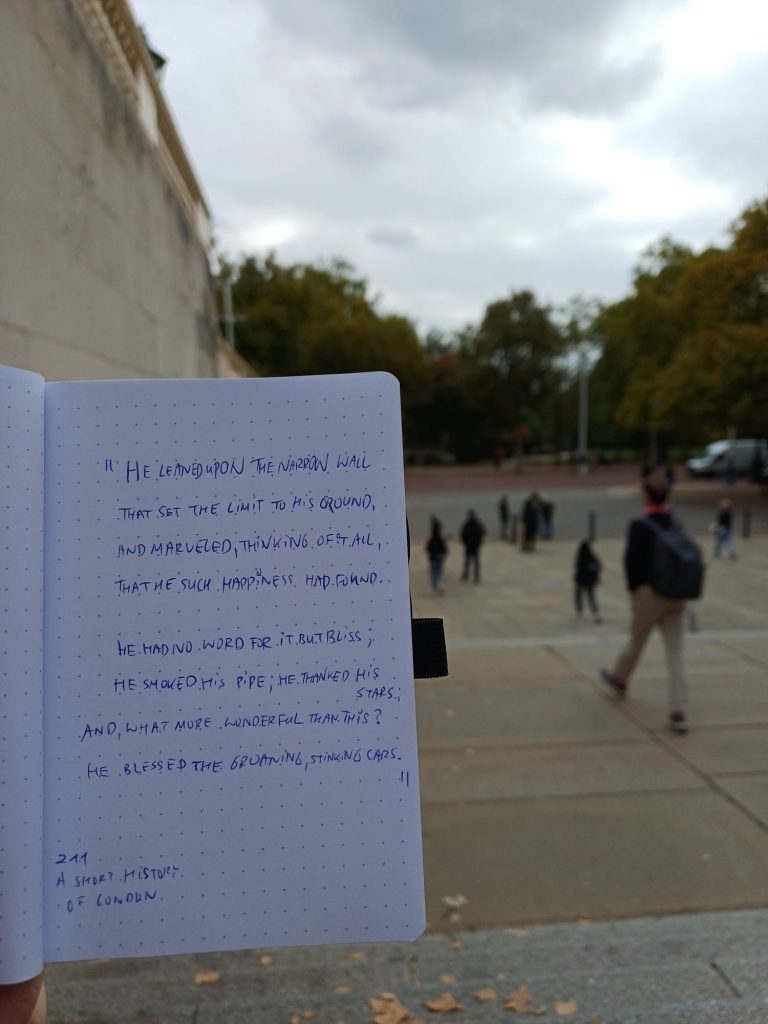 " HE LEANED UPON THE NARROW WALL
THAT SET THE LIMIT TO HIS GROUND,
AND MARVELED, THINKING OF IT ALL,
THAT HE SUCH HAPPINESS HAD FOUND.
HE HAD NO WORD FOR IT BUT BLISS;
HE SMOKED HIS PIPE; HE THANKED HIS
STARS;
AND, WHAT MORE WONDERFUL THAN THIS?
HE BLESSED THE GROANING, STINKING CARS.
"
211
A SHORT HISTORY
OF LONDON.